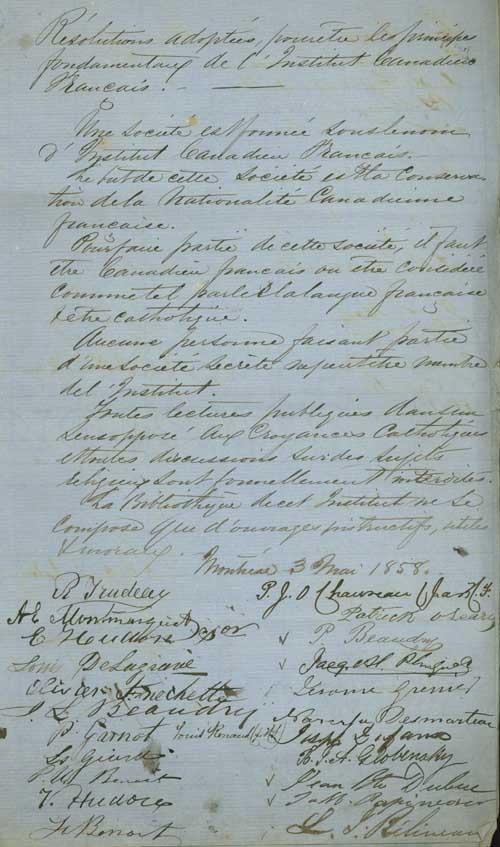 Résolutions adoptées, pour être les principes
fondamentaux de l'Institut Canadien
Français. —
Une société est formée sous le nom
d'Institut Canadien Français.
Le but de cette société est la conserva-
tion de la nationalité Canadienne
française.
Pour faire partie de cette société, il faut
être Canadien français ou être considéré
comme tel, parler la langue française
& être catholique.
Aucune personne faisant partie
d'une société secrète ne peut être membre
de l'Institut.
Toutes lectures publiques dans un
sens opposé aux croyances catholiques
et toutes discussions sur des sujets
religieux sont formellement interdites.
La Bibliothèque de cet Institut ne se
compose que d'ouvrages instructifs, utiles
& moraux.
Montréal 3 Mai 1858.
R Trudeau
P. J. O Chauveau
A E Montmarquet
Patrick O'Leary
C Hudon
P. Beaudry
Louis DeLagrave
Olivier Frechette
Jérome Grenier
J. L. Beaudry
Narcisse Desmarteau
P. Garnot Louis Renaud
L. Giard
B. A. Globensky
Benoit
Jean Bte Dubuc
V. Hudon
Papineau
Benoit
L. J. Béliveau